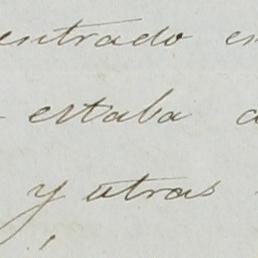 entrado en
estaba a
y utras